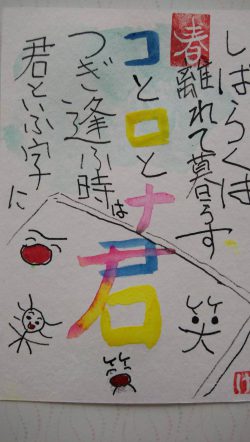 しばらくは
春
離れて暮らす
コとロとナ
つぎ逢ふ時は
君といふ字に
君
笑
笑
け